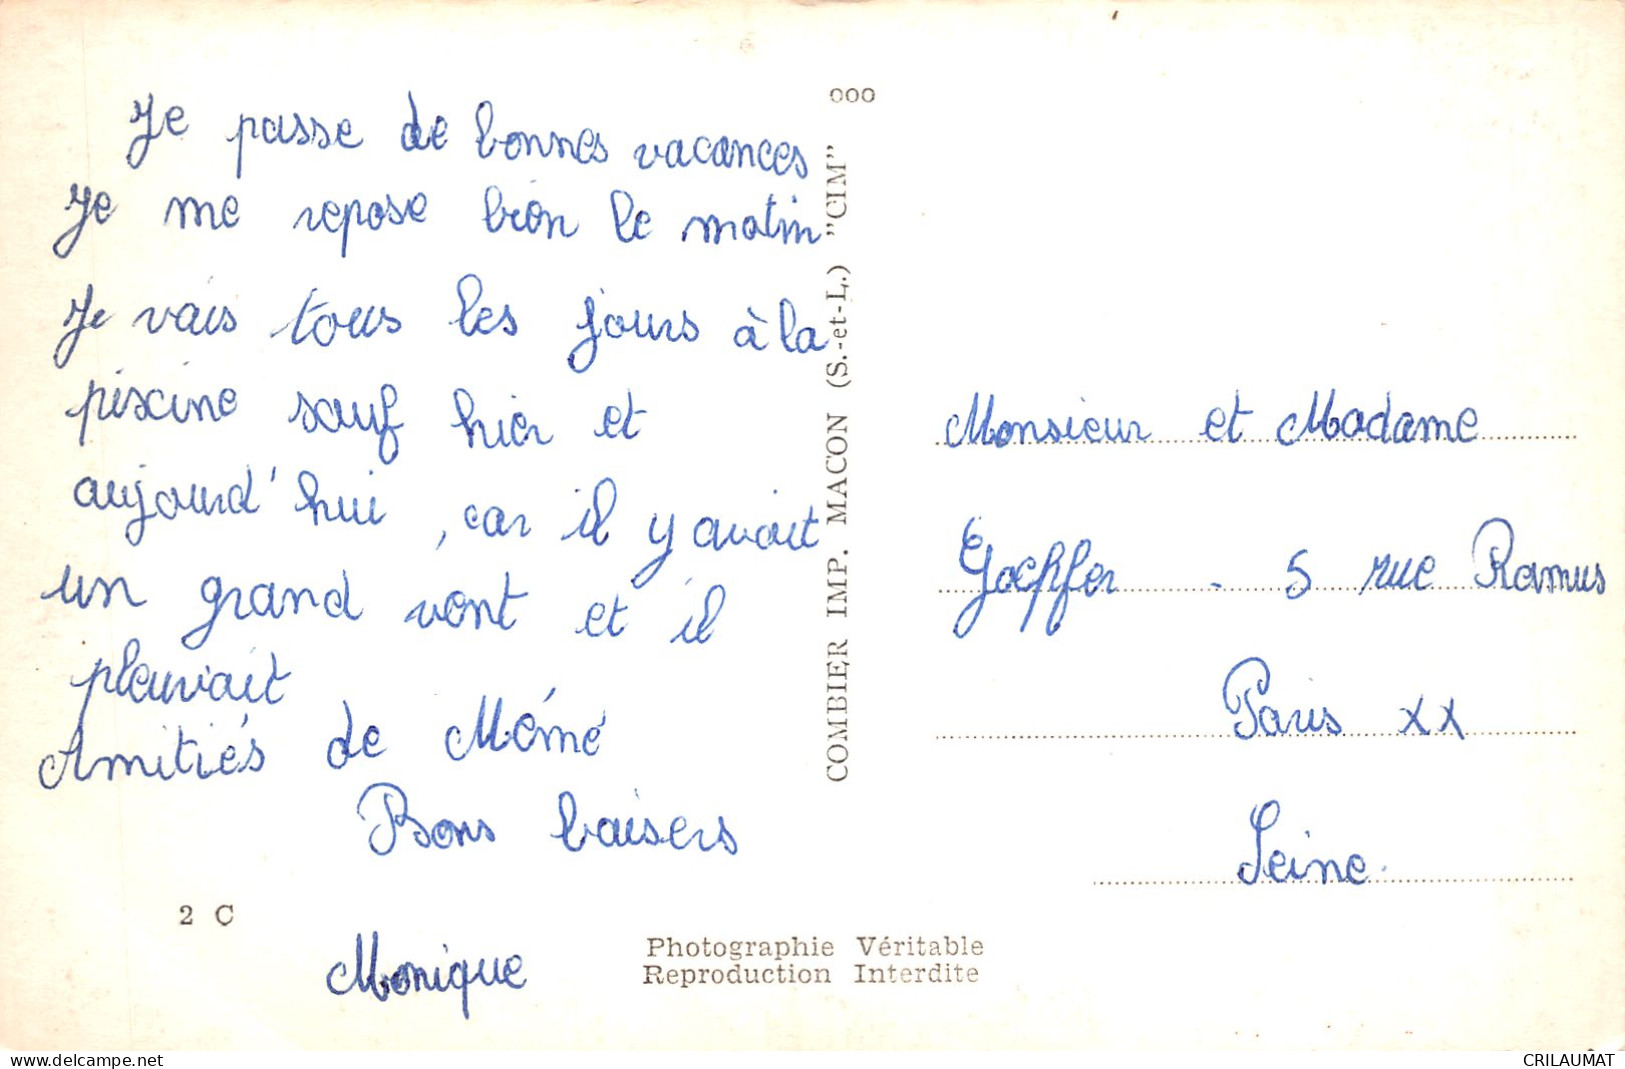 Je passe de bonnes vacances
Je me repose bien le matin
Je vais tous les jours à la
piscine sauf hier et
aujourd'hui, car il y avait
un grand vent et il
pleuvait
Amitiés de Mémé
Bons baisers
Monique
2 C
ooo
COMBIER IMP. MACON (S.-et-L.) "CIM"
Photographie Véritable
Reproduction Interdite
Monsieur et Madame
Goepfer - 5 rue Ramus
Paris XX
Seine.
delcampe.net
CRILAUMAT